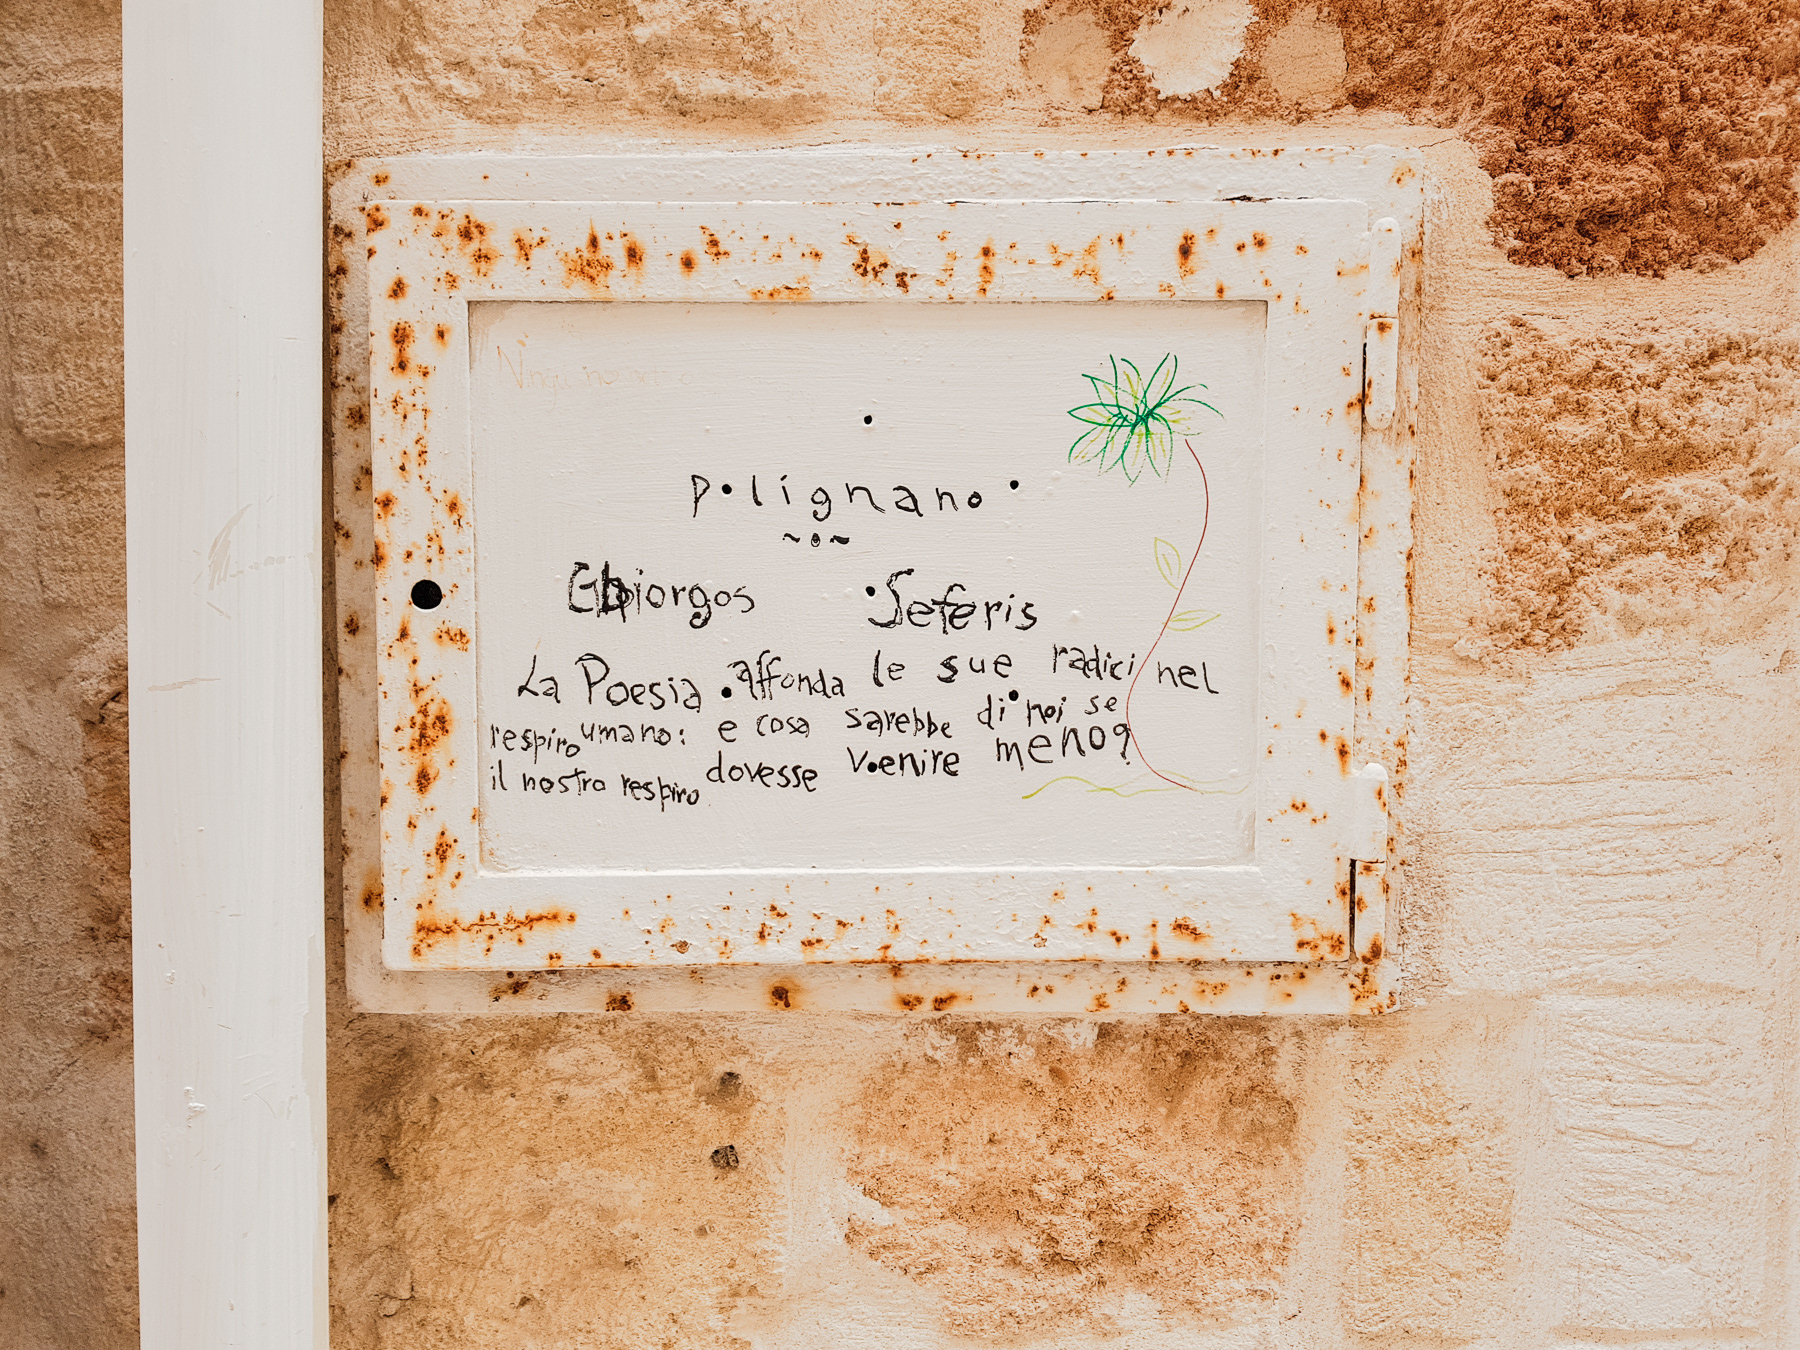 Polignano
Ghiorgos Seferis
La Poesia affonda le sue radici nel
respiro umano: e cosa sarebbe di noi se
il nostro respiro dovesse venire meno?